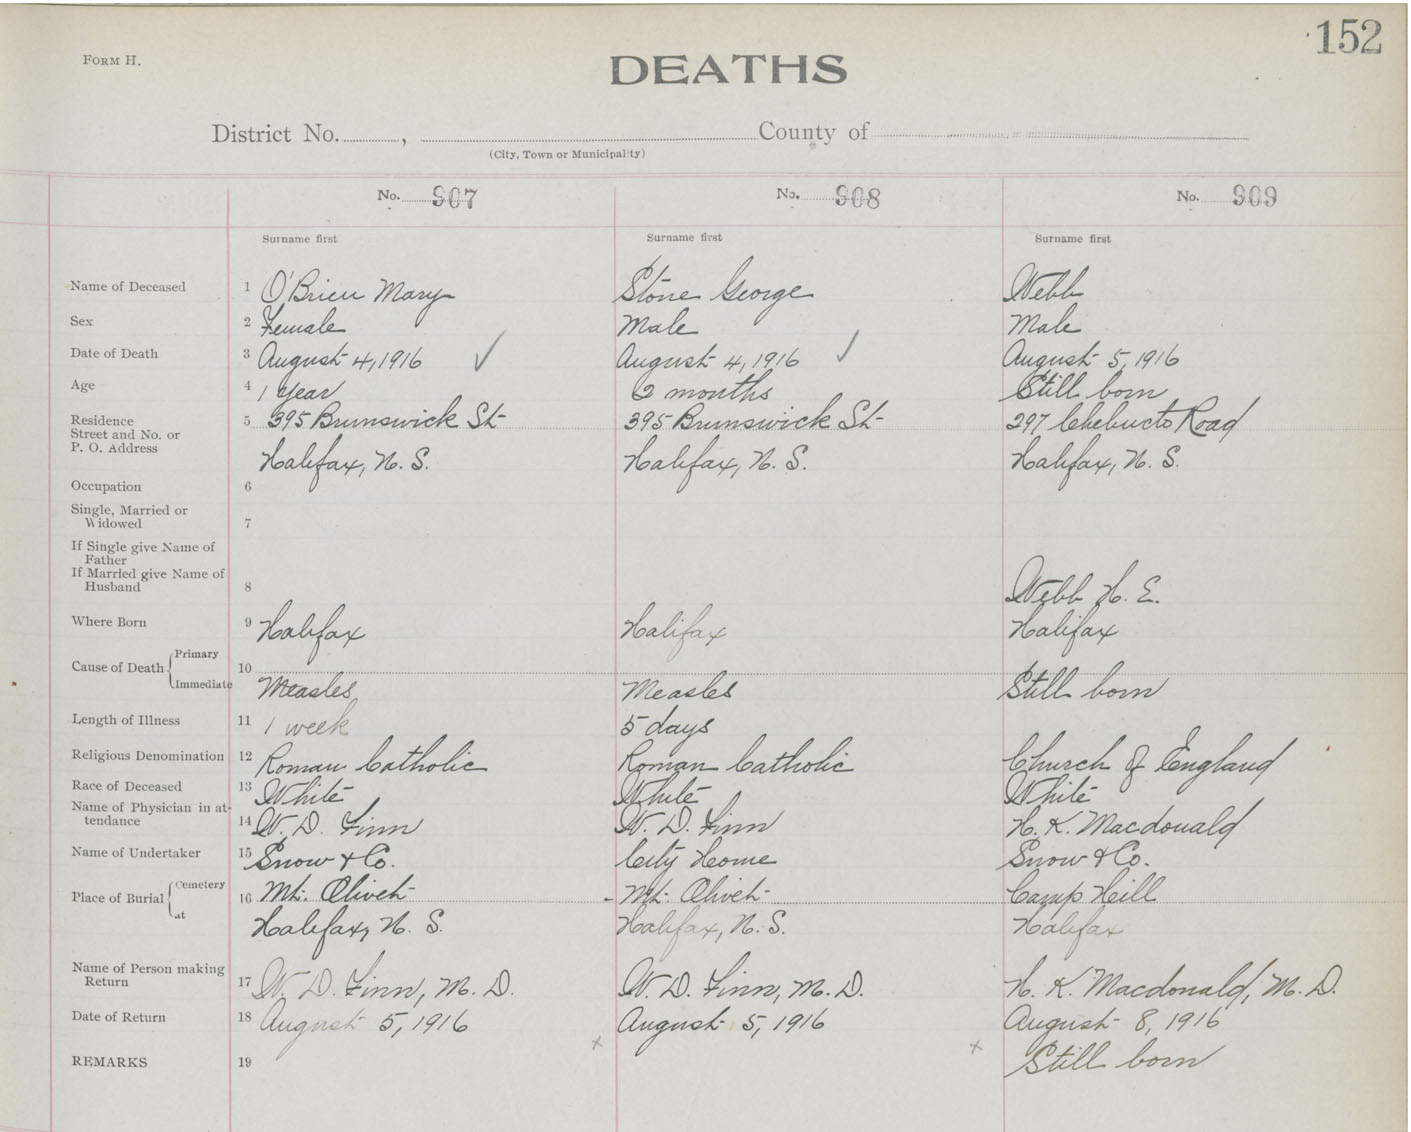 152
FORM H.
DEATHS
District No. , County of
(City, Town or Municipality)
No. 907 No. 908 No. 909
Surname first Surname first Surname first
Name of Deceased 1 O'Brien Mary Stone George Webb
Sex 2 Female Male Male
Date of Death 3 August 4, 1916 August 4, 1916 August 5, 1916
Age 4 1 year 2 months Still born
Residence
Street and No. or 5 395 Brunswick St 395 Brunswick St 297 Chebucto Road
P. O. Address
Halifax, N. S. Halifax, N. S. Halifax, N. S.
Occupation 6
Single, Married or
Widowed 7
If Single give Name of
Father
If Married give Name of
Husband 8 Webb H. E.
Where Born 9 Halifax Halifax Halifax
Primary
Cause of Death 10
Immediate Measles Measles Still born
Length of Illness 11 1 week 5 days
Religious Denomination 12 Roman Catholic Roman Catholic Church of England
Race of Deceased 13 White White White
Name of Physician in at-
tendance 14 W. D. Finn W. D. Finn H. K. Macdonald
Name of Undertaker 15 Snow & Co. City Home Snow & Co.
Cemetery
Place of Burial 16 Mt. Olivet Mt. Olivet Camp Hill
at Halifax, N. S. Halifax, N. S. Halifax
Name of Person making
Return 17 W. D. Finn, M. D. W. D. Finn, M. D. H. K. Macdonald, M. D.
Date of Return 18 August 5, 1916 August 5, 1916 August 8, 1916
REMARKS 19 Still born